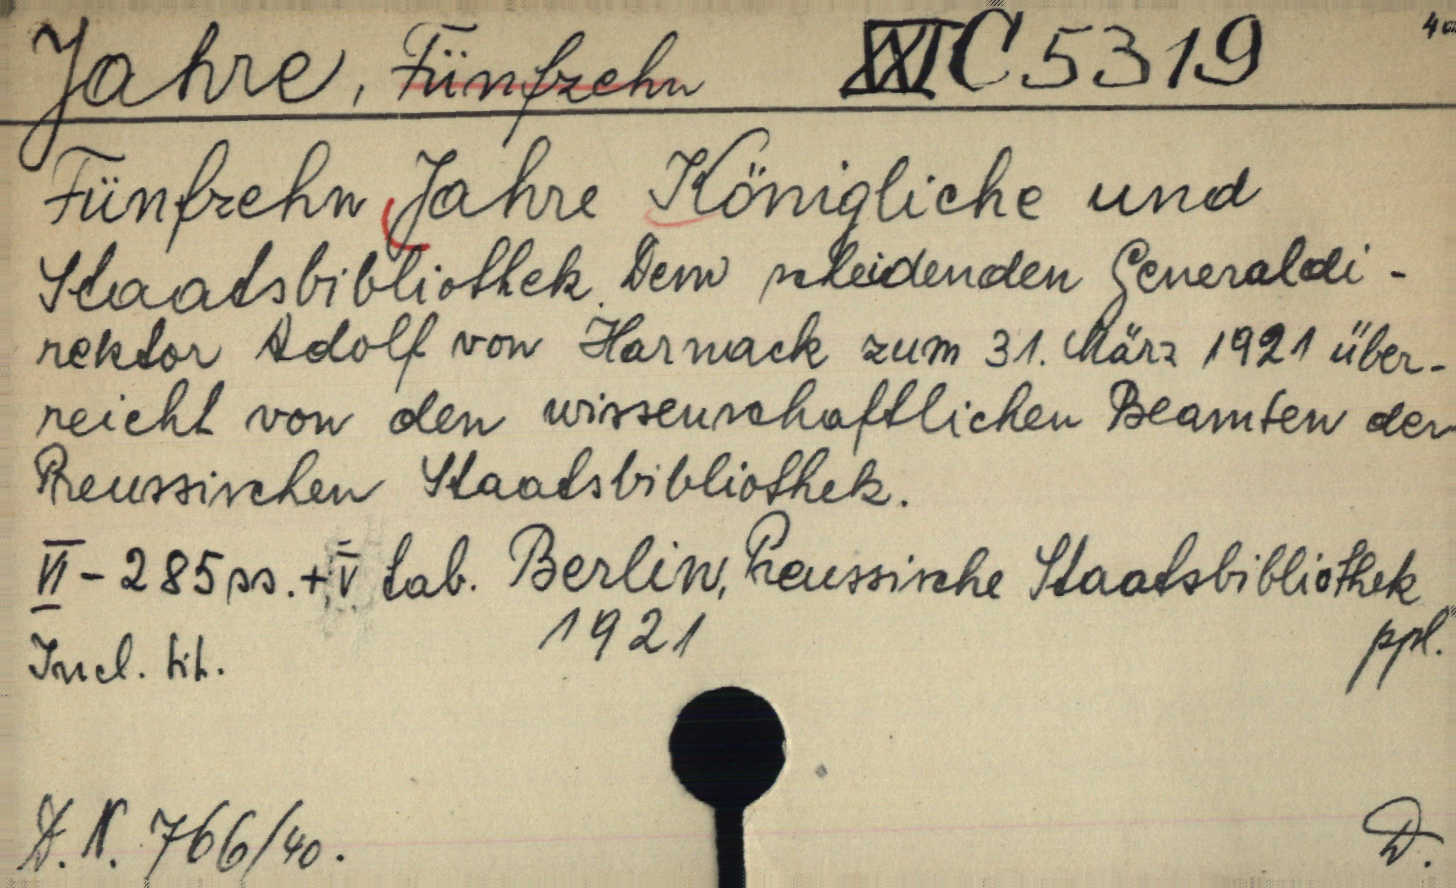 Jahre, Fünfzehn XXI C 5319
Fünfzehn Jahre Königliche und
Staatsbibliothek. Dem scheidenden Generaldi-
rektor Adolf von Harnack zum 31. März 1921 über-
reicht von den wissenschaftlichen Beamten der
Preussischen Staatsbibliothek.
VI - 285 ss. + V tab. Berlin, Preussische Staatsbibliothek
1921 ppl.
Incl. tit.
D. N. 766/40. D.